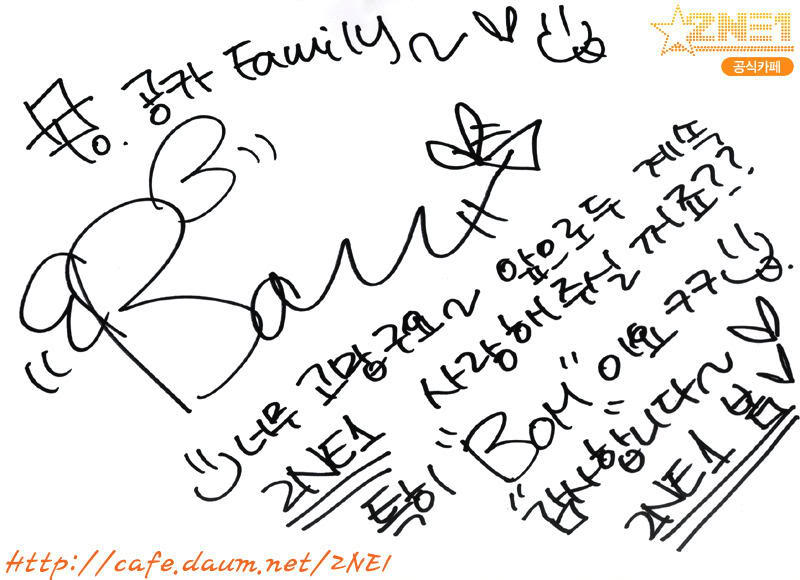 2NE1
공식카페
To. 공카 Family~♡
Bom
너무 고맙구요~ 앞으로두 계속
2NE1 사랑해주실 꺼죠??
특히 "BOM"이요 ㅋㅋ
"감사합니다~♡
2NE1 봄♡
Http://cafe.daum.net/2NE1